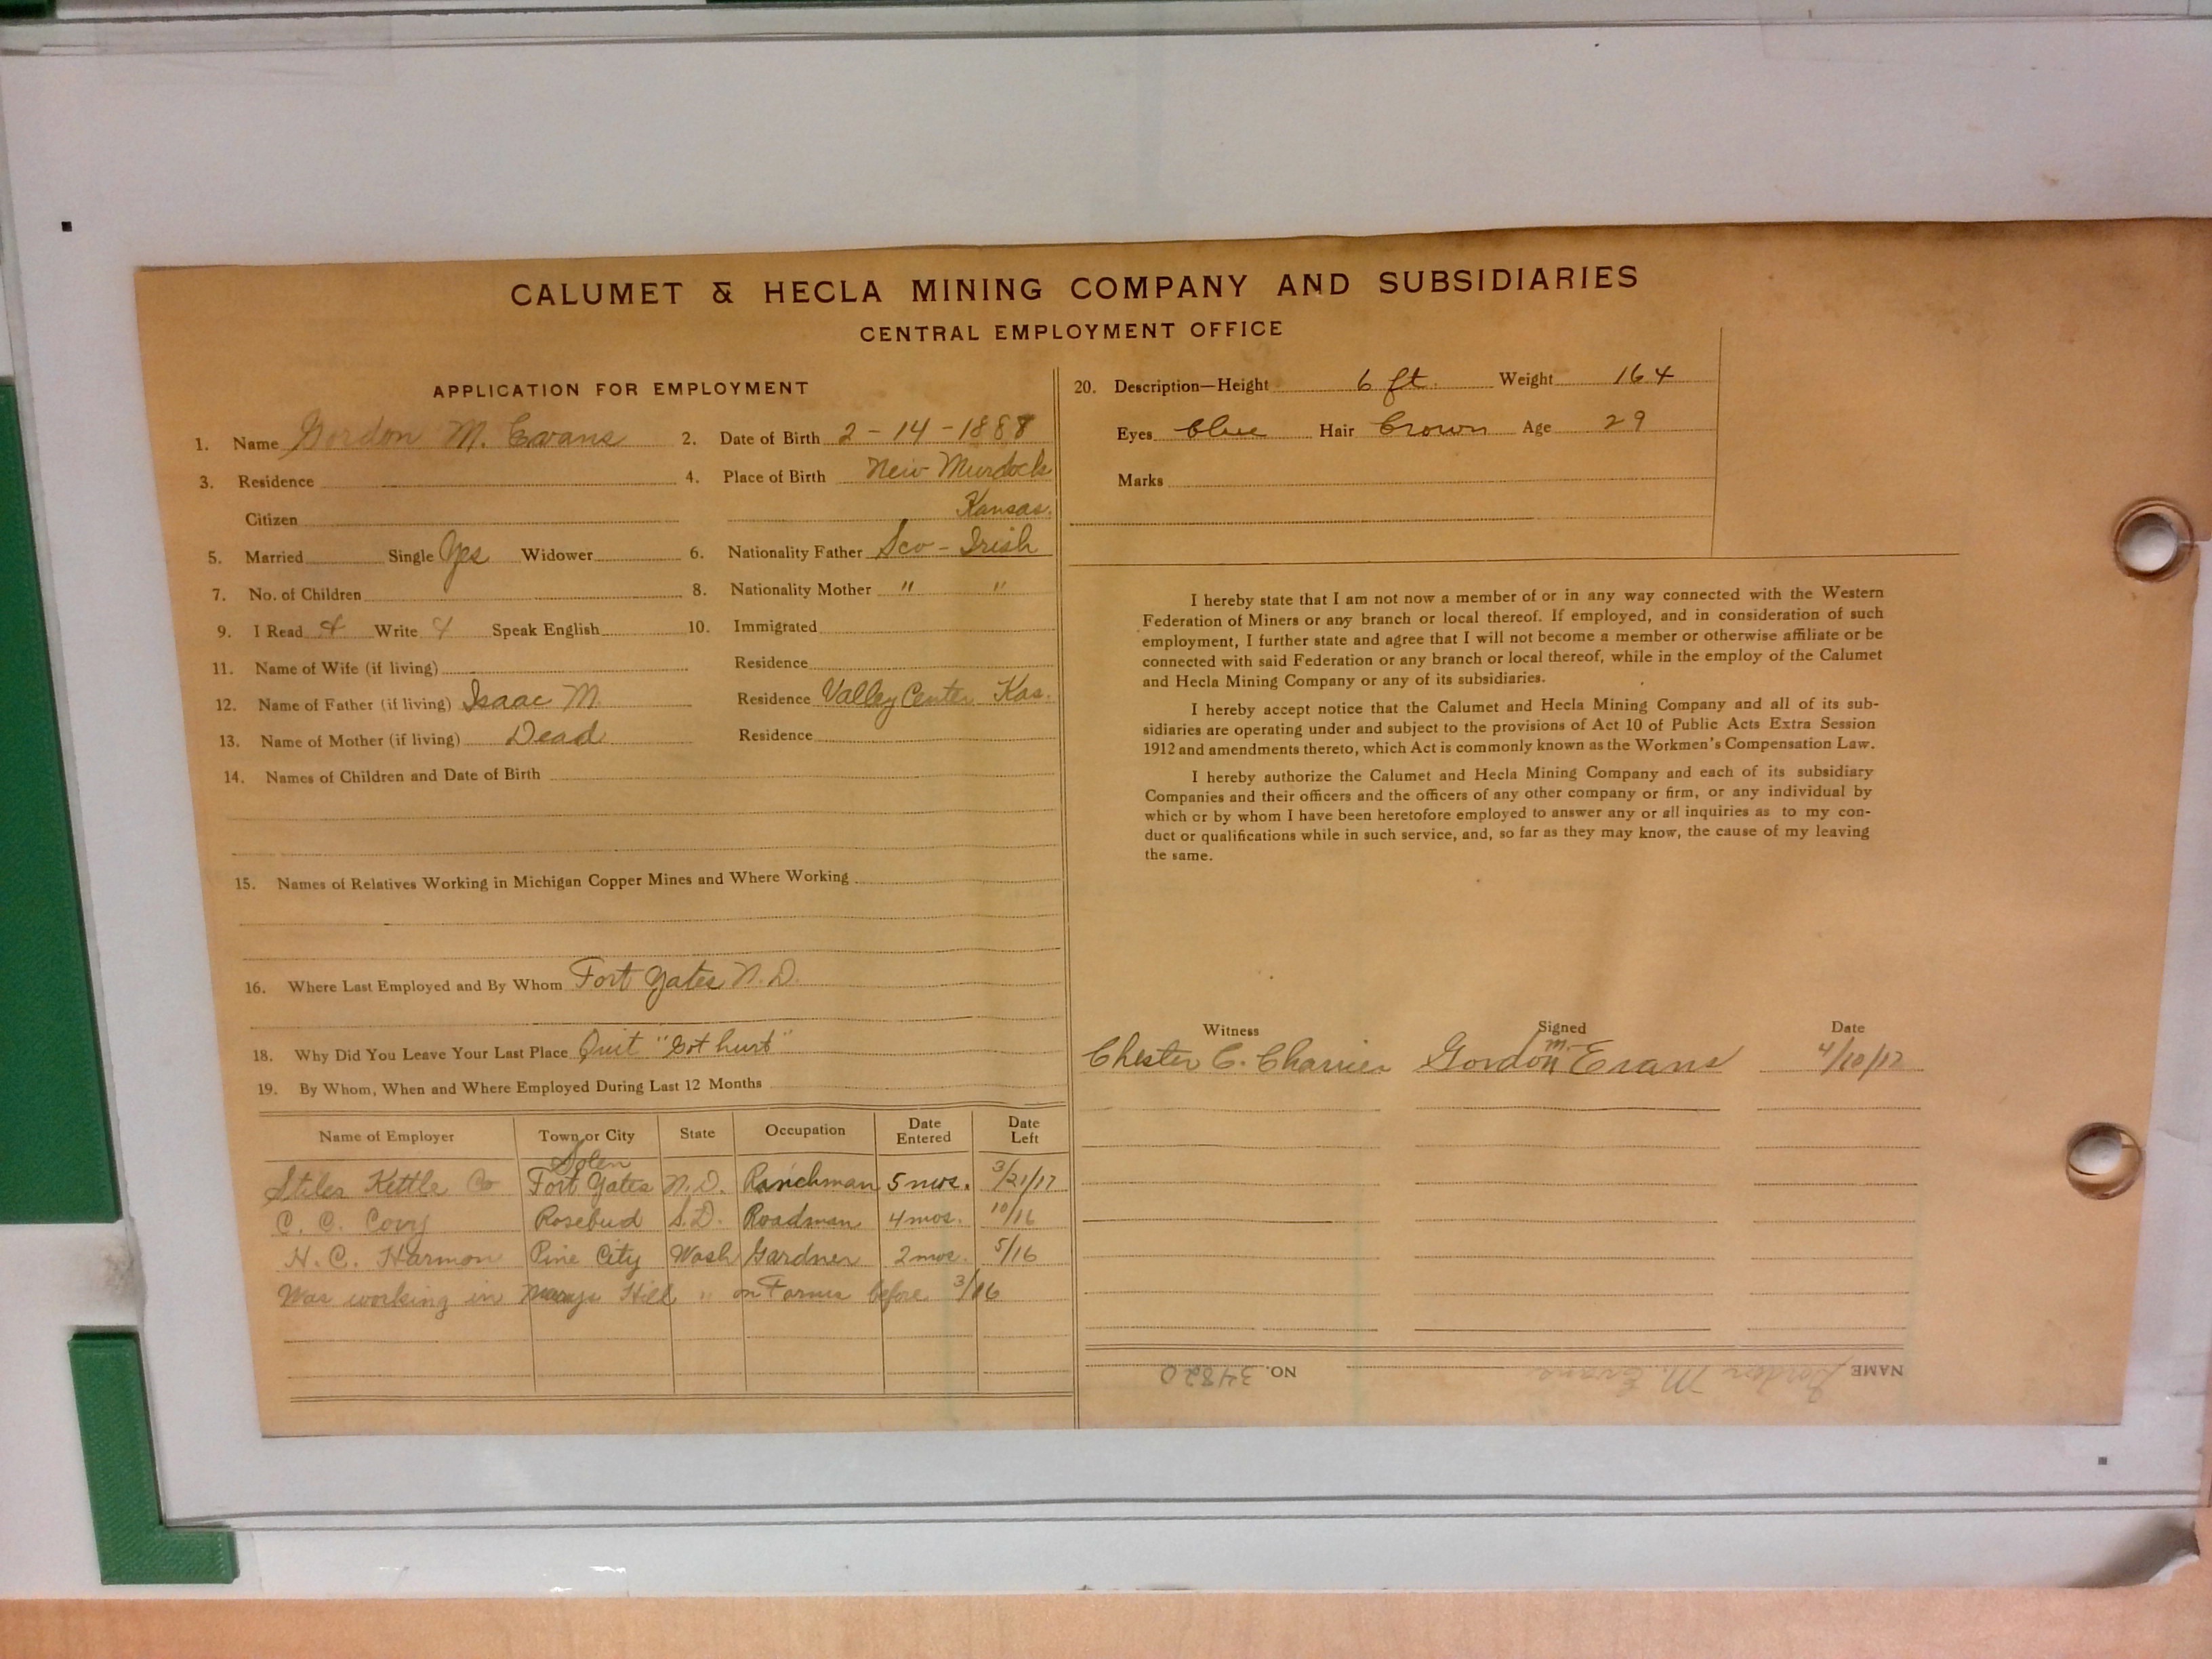 CALUMET & HECLA MINING COMPANY AND SUBSIDIARIES
CENTRAL EMPLOYMENT OFFICE
APPLICATION FOR EMPLOYMENT
1. Name Gordon M. Evans 2. Date of Birth 2-14-1888
3. Residence 4. Place of Birth New Murdock
Citizen Kansas.
5. Married Single Yes Widower 6. Nationality Father Sco-Irish
7. No. of Children 8. Nationality Mother " "
9. I Read Write Speak English 10. Immigrated
11. Name of Wife (if living) Residence
12. Name of Father (if living) Isaac M. Residence Valley Center Kas.
13. Name of Mother (if living) Dead Residence
14. Names of Children and Date of Birth
15. Names of Relatives Working in Michigan Copper Mines and Where Working
16. Where Last Employed and By Whom Fort Yates N.D.
18. Why Did You Leave Your Last Place Quit "Got hurt"
19. By Whom, When and Where Employed During Last 12 Months
Name of Employer Town or City State Occupation Date Entered Date Left
Solen
Stiles Kettle Co Fort Yates N.D. Ranchman 5 mos. 3/21/17
C. C. Rosebud S.D. Roadman 4 mos. 10/16
H. C. Harmon Pine City Wash Gardner 2 mos. 5/16
Was working in Hill " on Farms before 3/16
20. Description—Height 6 ft. Weight 164
Eyes blue Hair brown Age 29
Marks
I hereby state that I am not now a member of or in any way connected with the Western
Federation of Miners or any branch or local thereof. If employed, and in consideration of such
employment, I further state and agree that I will not become a member or otherwise affiliate or be
connected with said Federation or any branch or local thereof, while in the employ of the Calumet
and Hecla Mining Company or any of its subsidiaries.
I hereby accept notice that the Calumet and Hecla Mining Company and all of its sub-
sidiaries are operating under and subject to the provisions of Act 10 of Public Acts Extra Session
1912 and amendments thereto, which Act is commonly known as the Workmen's Compensation Law.
I hereby authorize the Calumet and Hecla Mining Company and each of its subsidiary
Companies and their officers and the officers of any other company or firm, or any individual by
which or by whom I have been heretofore employed to answer any or all inquiries as to my con-
duct or qualifications while in such service, and, so far as they may know, the cause of my leaving
the same.
Witness Signed Date
Chester C. Gordon M. Evans 4/10/17
NAME Gordon M. Evans NO. 34820